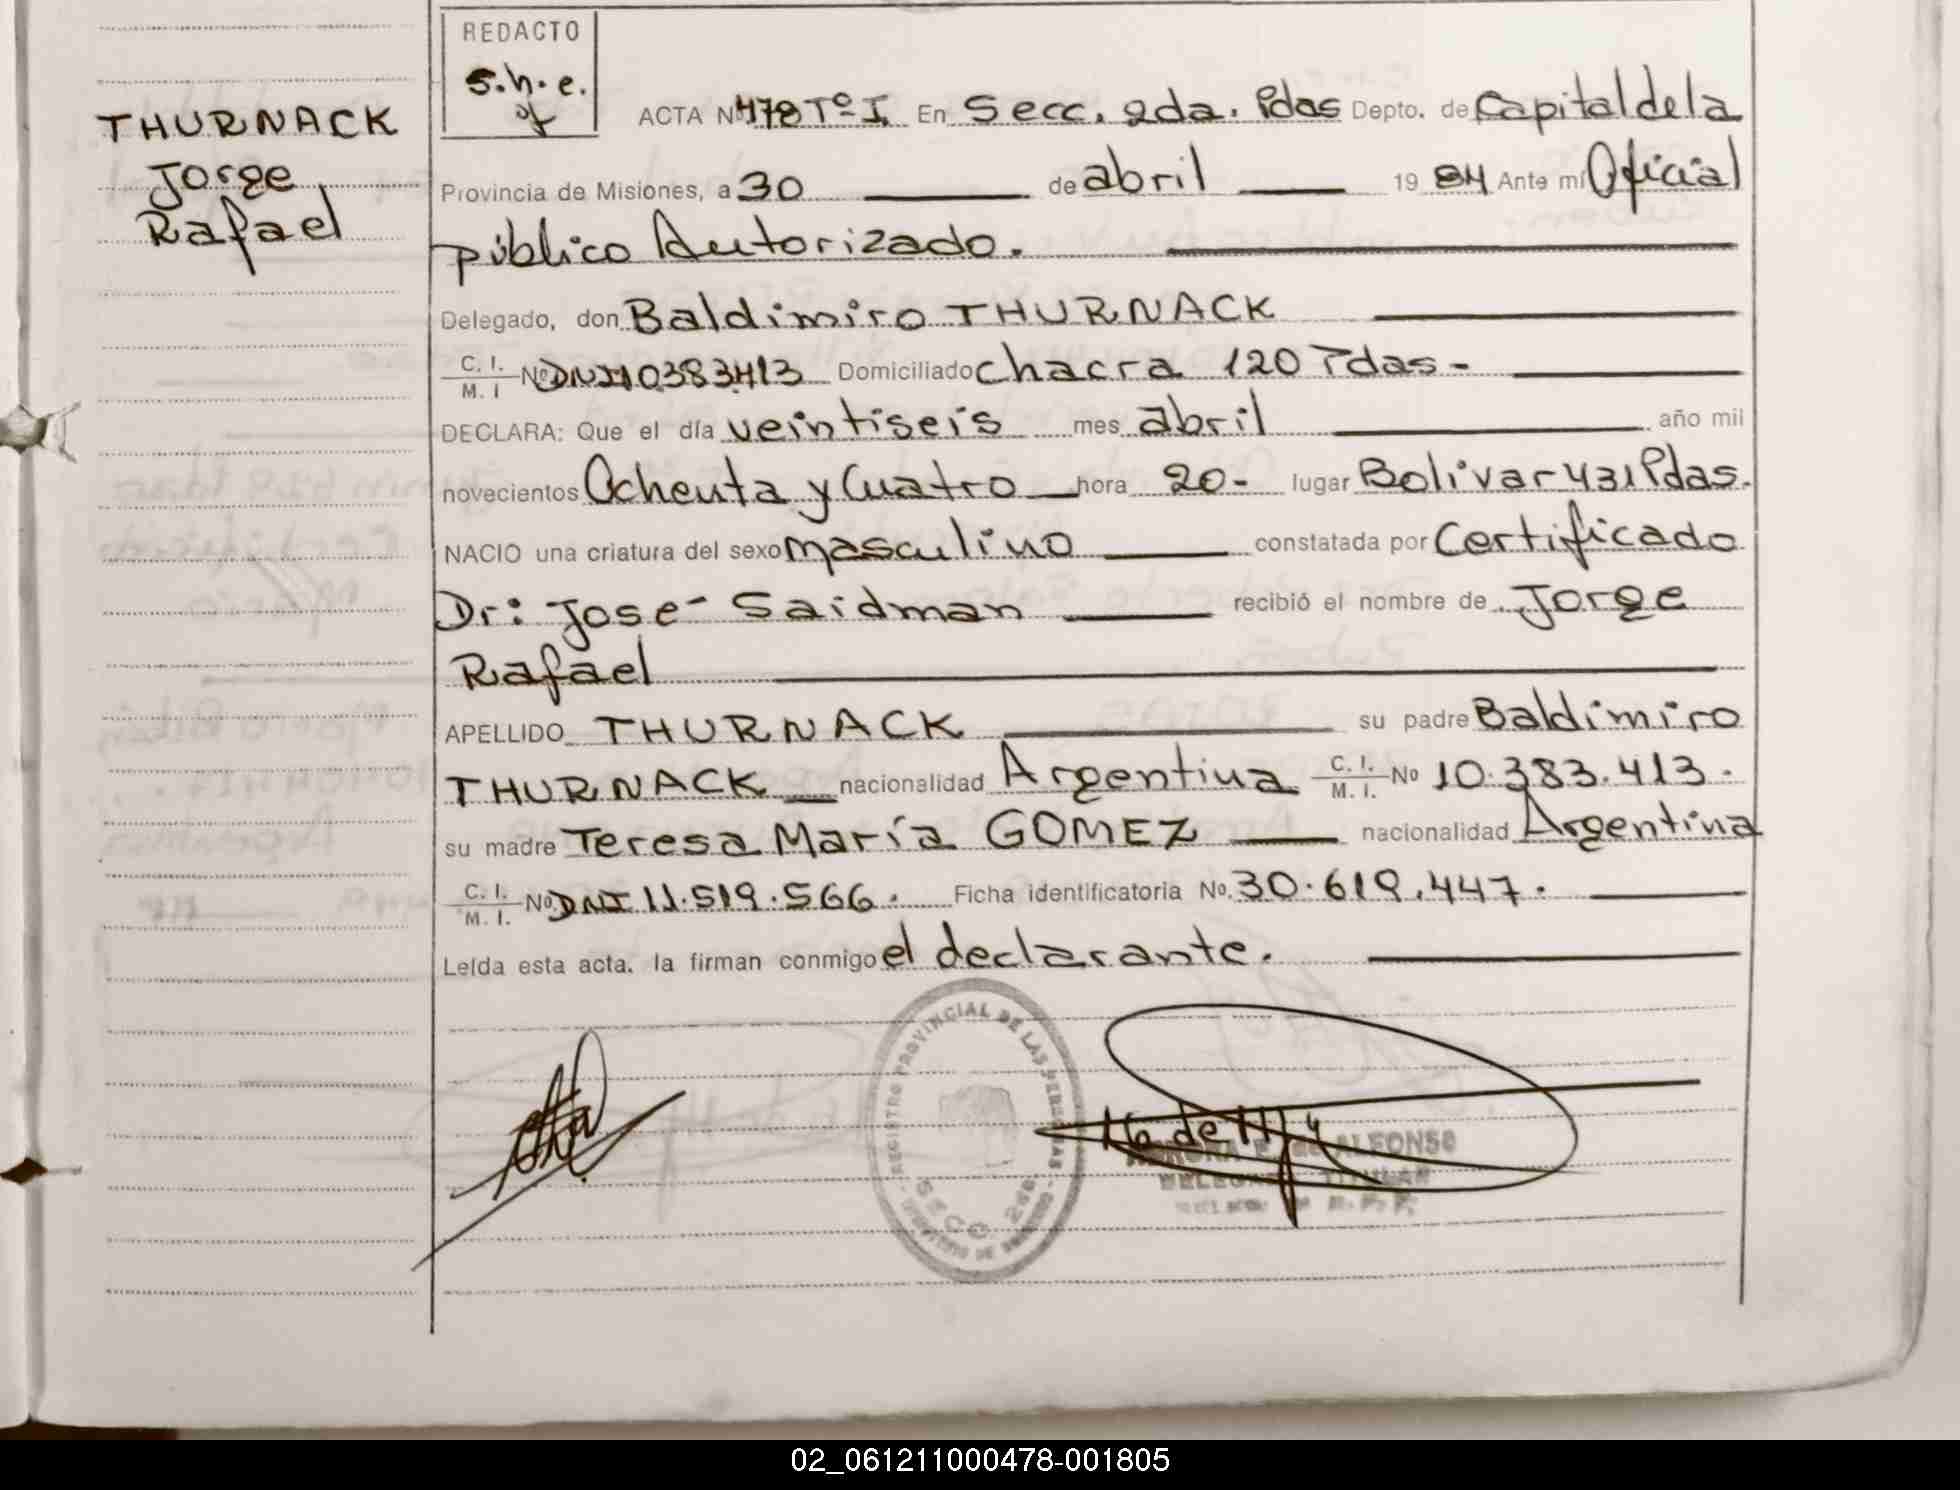 REDACTO
S.h.e.
THURNACK
Jorge
Rafael
ACTA Nº 478 Tº I En Secc. 2da. Pdas Depto. de Capital de la
Provincia de Misiones, a 30 de abril 19 84 Ante mi Oficial
público Autorizado.
Delegado, don Baldimiro THURNACK
C. I. / M. I Nº DNI 10383413 Domiciliado Chacra 120 Pdas-
DECLARA: Que el día veintiseis mes abril año mil
novecientos Ochenta y Cuatro hora 20- lugar Bolivar 431 Pdas.
NACIO una criatura del sexo masculino constatada por Certificado
Dr: Jose Saidman recibió el nombre de Jorge
Rafael
APELLIDO THURNACK su padre Baldimiro
THURNACK nacionalidad Argentina C. I. / M. I. Nº 10.383.413.
su madre Teresa María GOMEZ nacionalidad Argentina
C. I. / M. I. Nº DNI 11.519.566. Ficha identificatoria No. 30.619.447.
Leída esta acta, la firman conmigo el declarante.
REGISTRO PROVINCIAL DE LAS PERSONAS
SECC. 2da
ALFONSO
DELEGADA TITULAR
R. P. P.
02_061211000478-001805